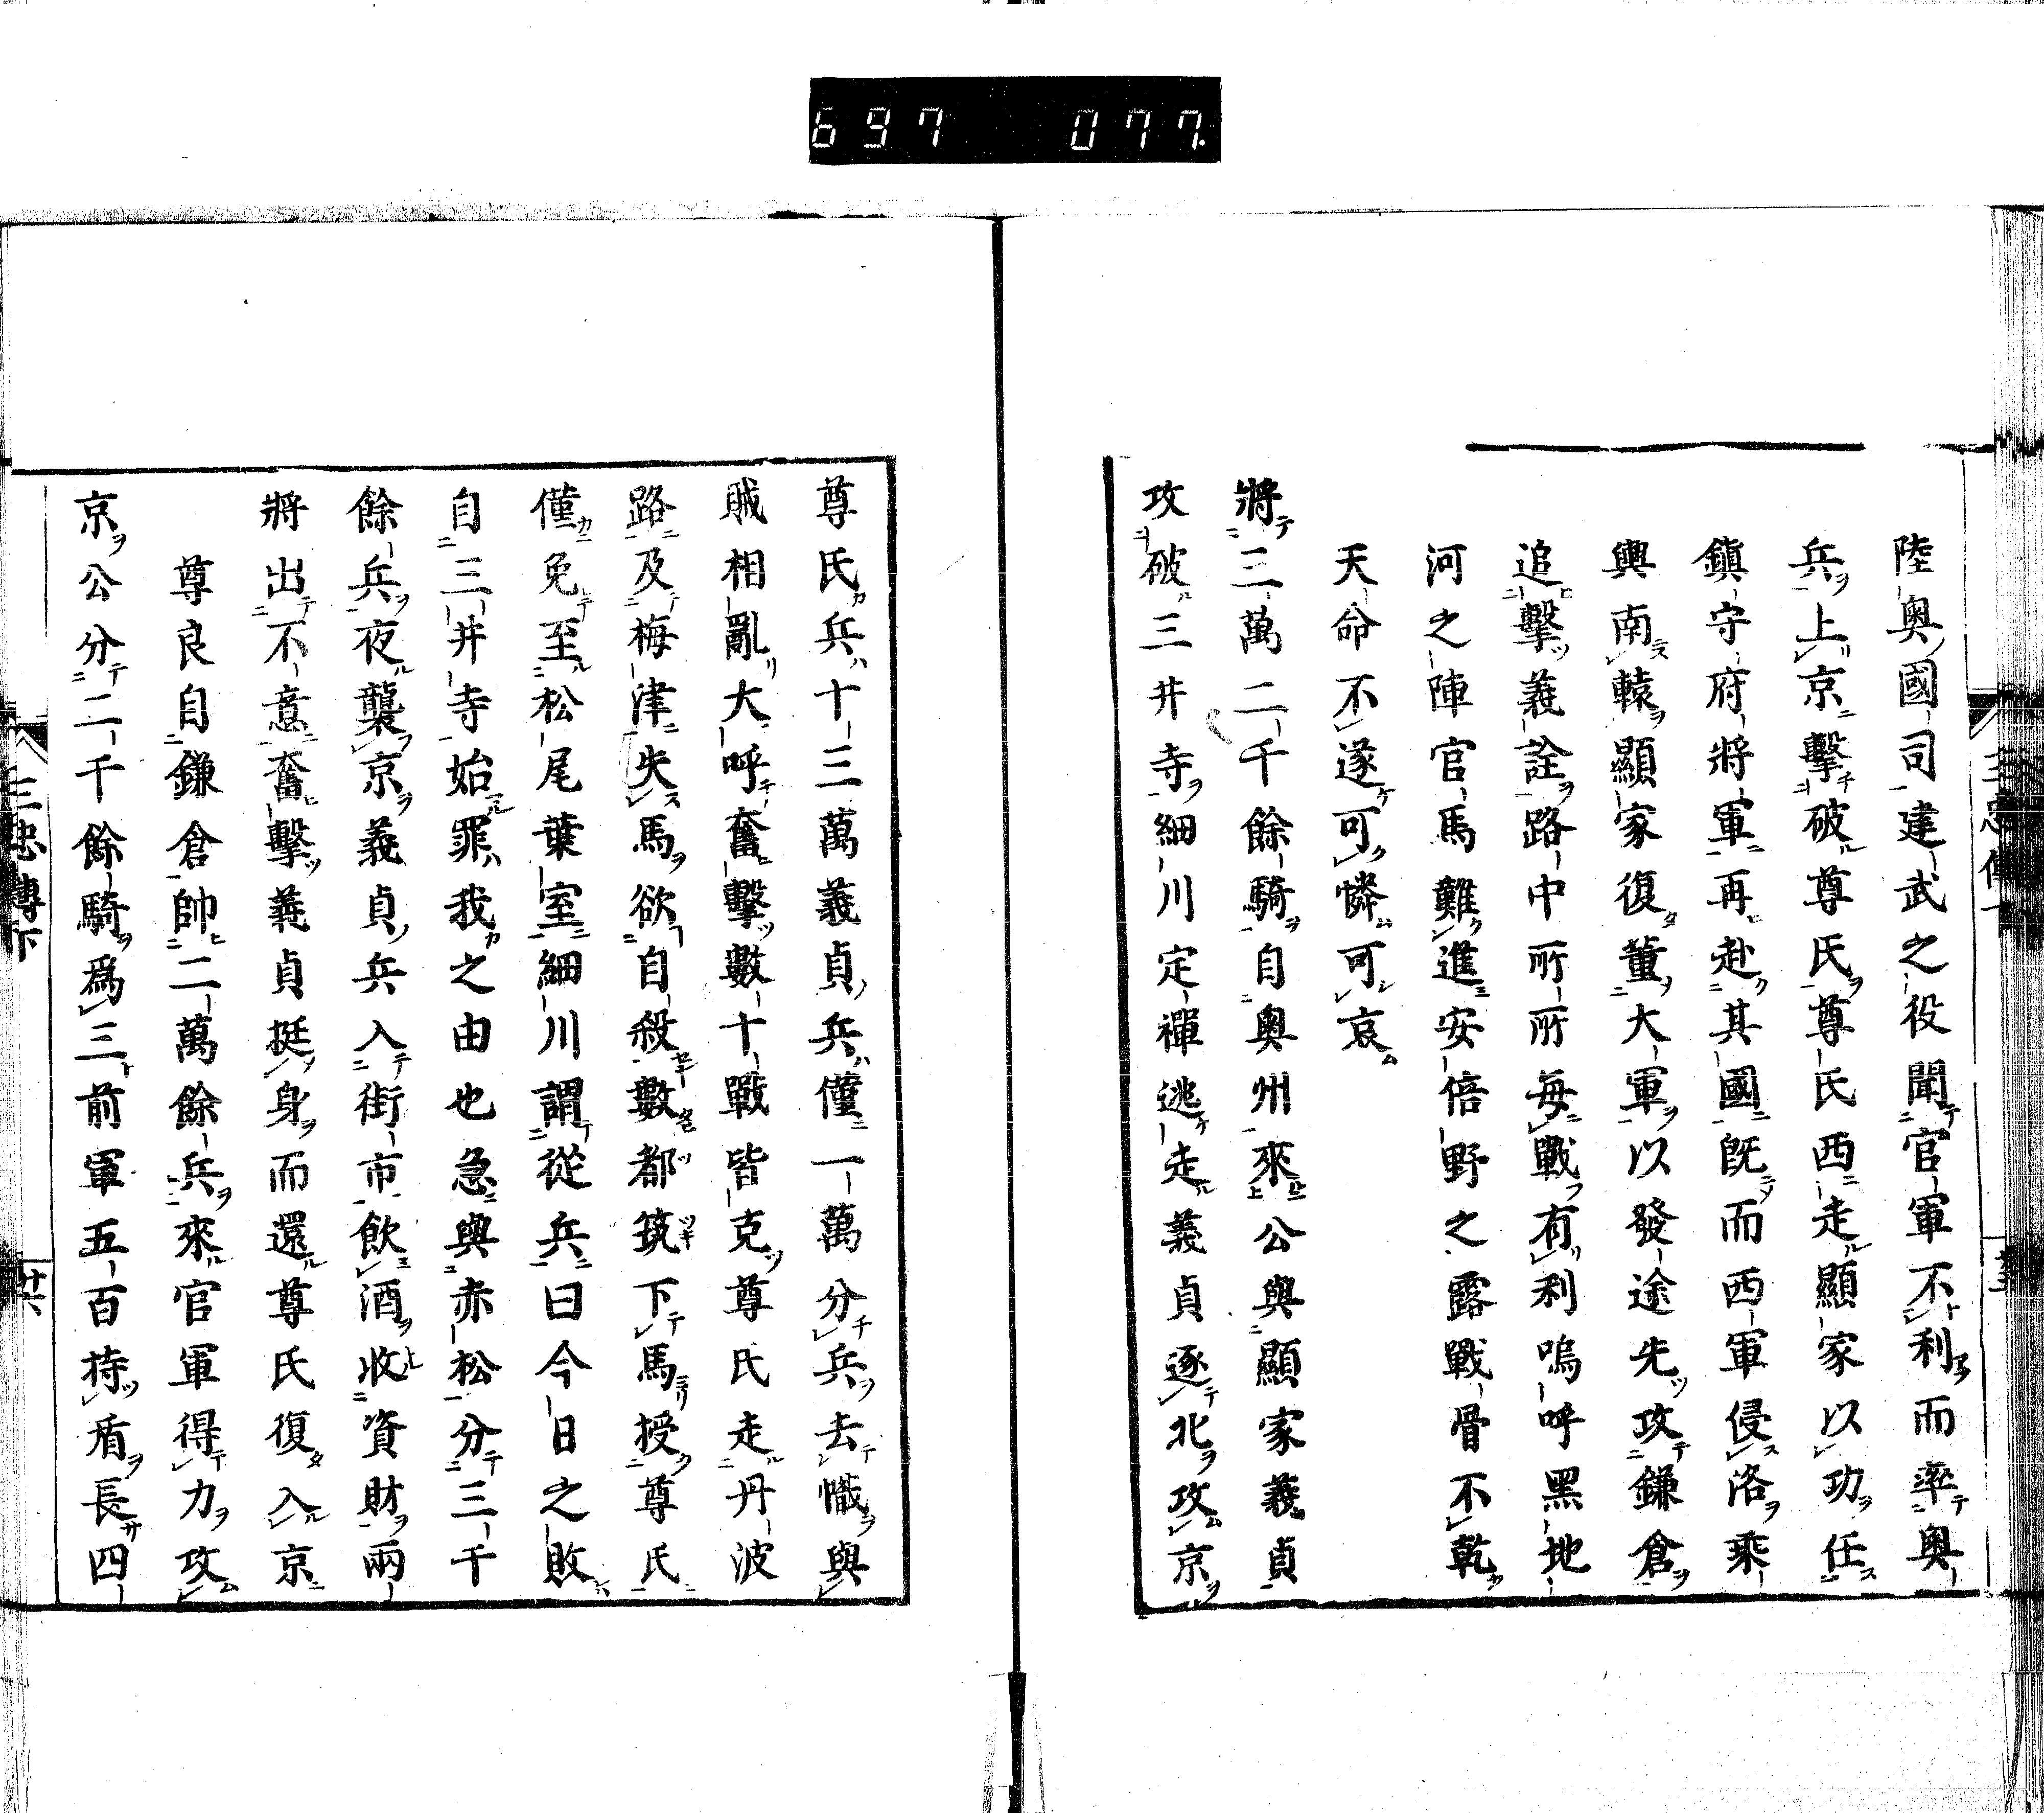 697 077.
陸奥國司建武之役聞官軍不利而率奥
兵上京擊破尊氏尊氏西走顯家以功任
鎭守府將軍再赴其國既而西軍侵洛乘
輿南轅顯家復董大軍以發途先攻鎌倉
追擊義詮路中所所每戰有利嗚呼黑地
河之陣官馬難進安倍野之露戰骨不乾
天命不遂可憐可哀
將三萬二千餘騎自奥州來公與顯家義貞
攻破三井寺細川定禪逃走義貞逐北攻京
尊氏兵十三萬義貞兵僅一萬分兵去幟與
賊相亂大呼奮擊數十戰皆克尊氏走丹波
路及梅津失馬欲自殺數都筑下馬授尊氏
僅免至松尾葉室細川謂從兵曰今日之敗
自三井寺始罪我之由也急與赤松分三千
餘兵夜襲京義貞兵入街市飲酒收資財兩
將出不意奮擊義貞挺身而還尊氏復入京
尊良自鎌倉帥二萬餘兵來官軍得力攻
京公分二千餘騎爲三前軍五百持盾長四
三忠傳下
廿六